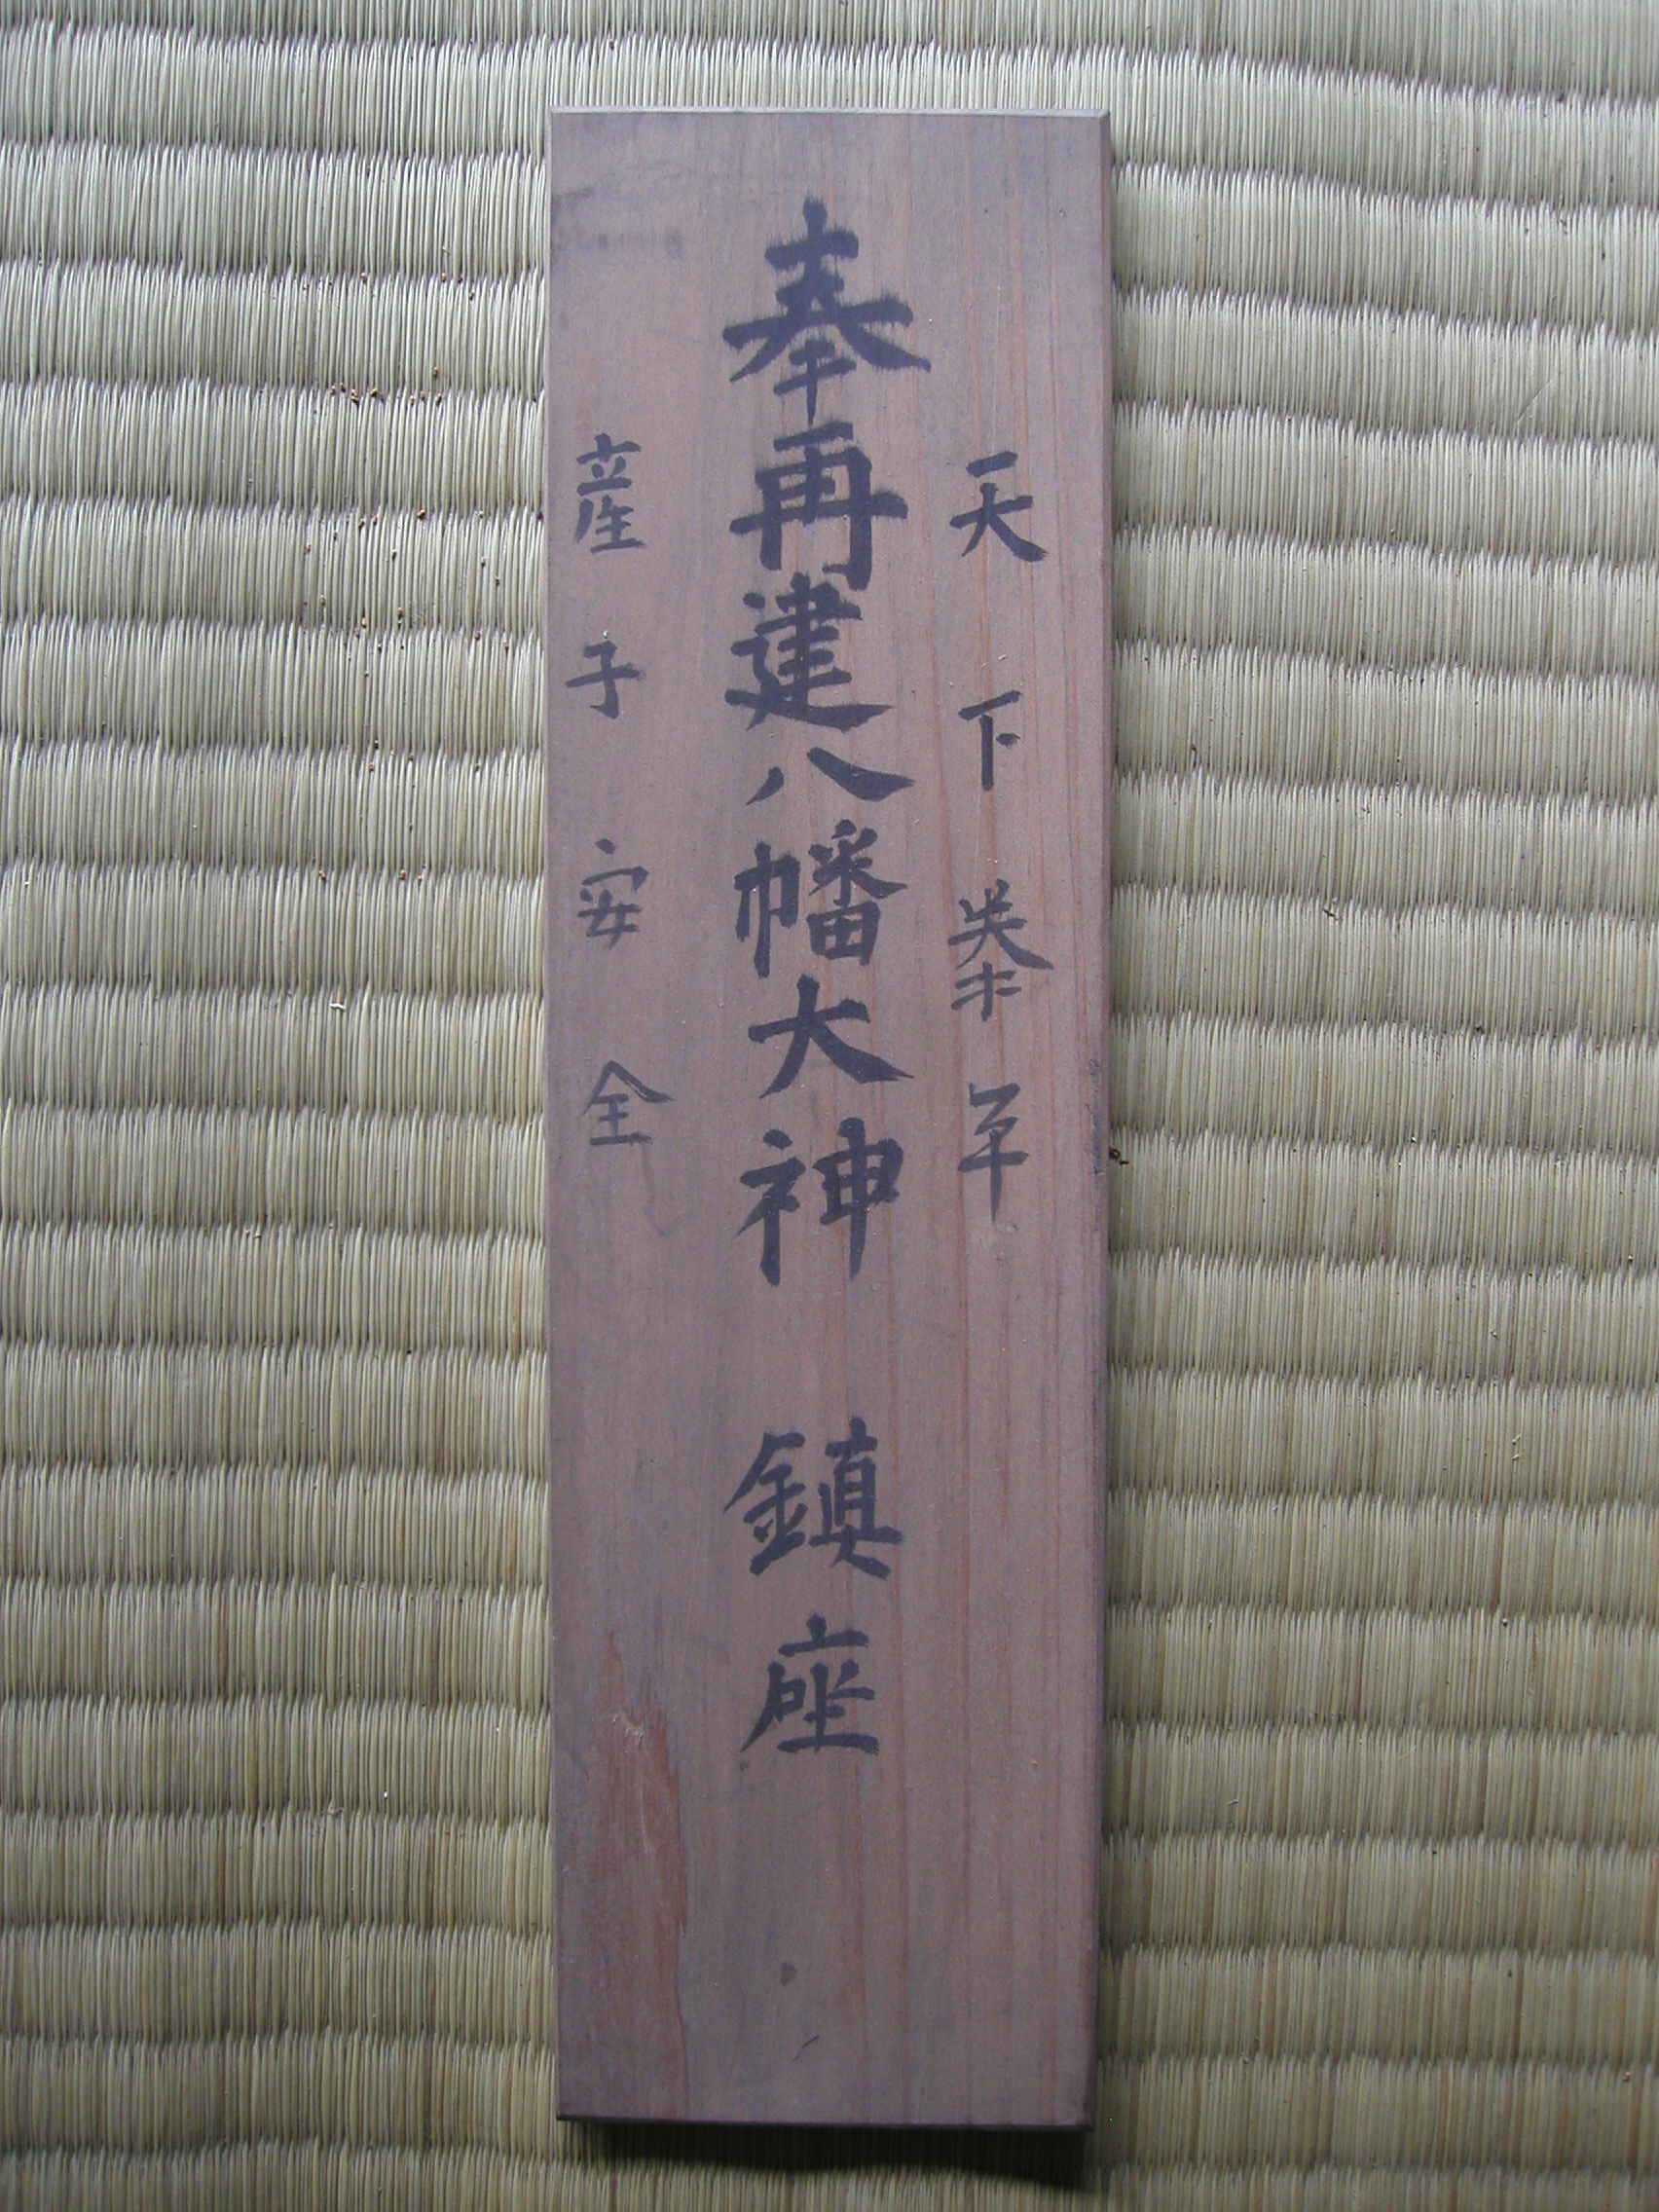 天下泰平
奉再建八幡大神 鎮座
産子安全